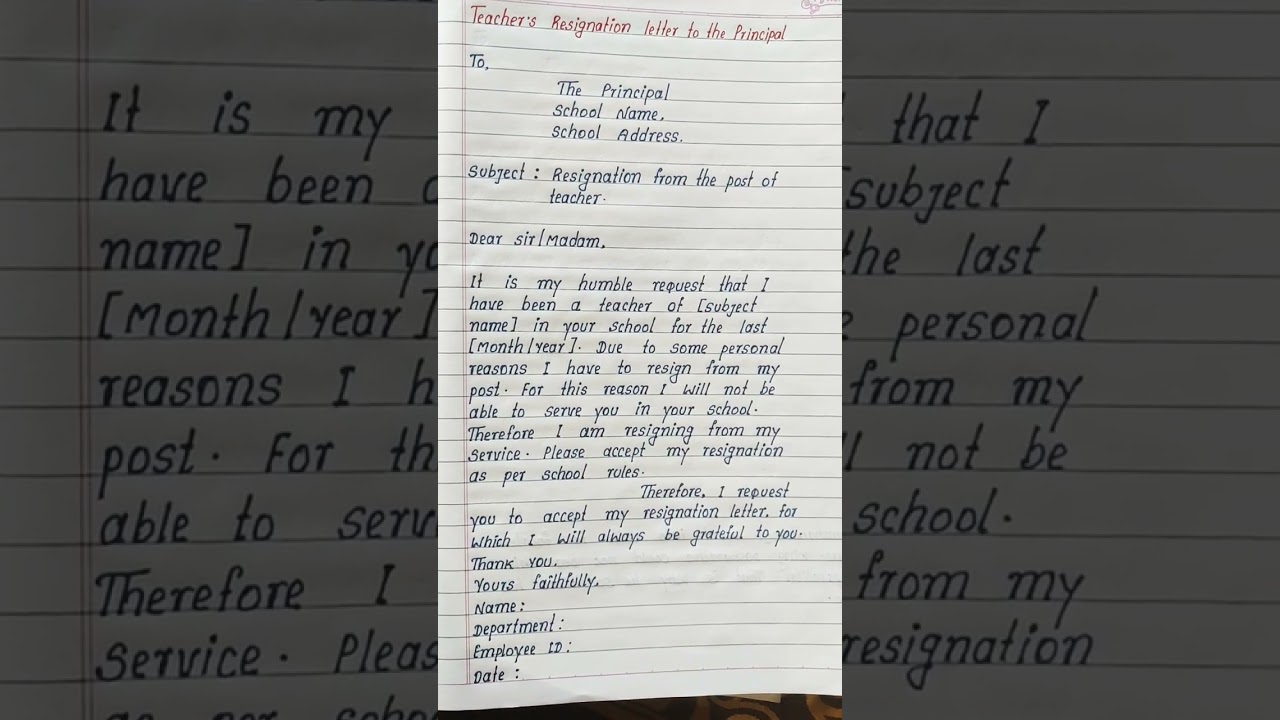 Teacher's Resignation letter to the Principal
To,
The Principal
School Name,
School Address.
Subject : Resignation from the post of
teacher.
Dear Sir/Madam,
It is my humble request that I
have been a teacher of [subject
name] in your school for the last
[Month/year]. Due to some personal
reasons I have to resign from my
post. For this reason I will not be
able to serve you in your school.
Therefore I am resigning from my
Service. Please accept my resignation
as per school rules.
Therefore, I request
you to accept my resignation letter, for
which I will always be grateful to you.
Thank you,
Yours faithfully,
Name:
Department:
Employee ID:
Date :